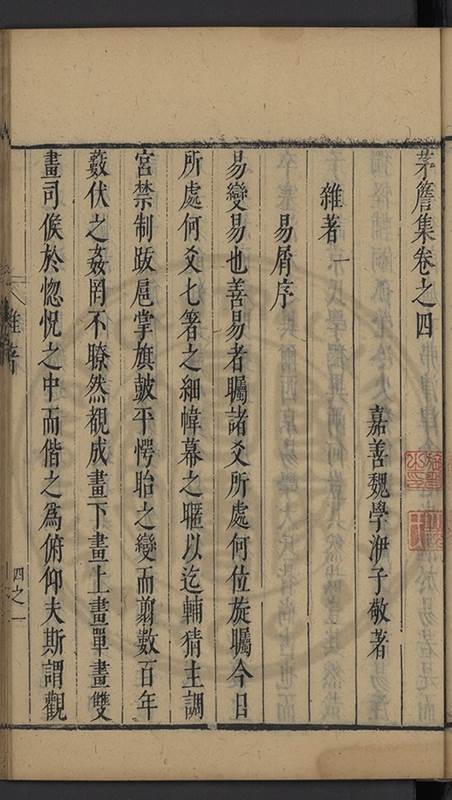 茅簷集卷之四
嘉善魏學洢子敬著
雜著一
易屑序
易變易也善易者矚諸爻所處何位旋矚今日
所處何爻七箸之細幃幕之暱以迄輔猜主調
宮禁制跋扈掌旗鼓平愕眙之變而翦數百年
藪伏之姦罔不瞭然覩成畫下畫上畫單畫雙
畫司候於惚怳之中而偕之為俯仰夫斯謂觀
雜著
四之一